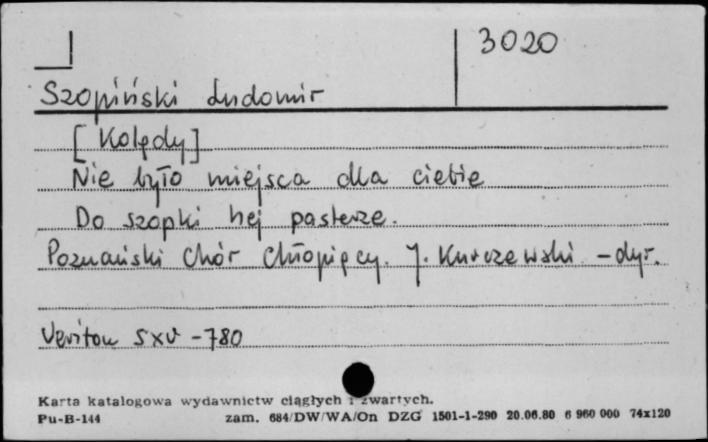 3020
Szopiński Ludomir
[Kolędy]
Nie było miejsca dla ciebie
Do szopki hej pasterze.
Poznański Chór Chłopięcy. J. Kurczewski - dyr.
Veriton SXV - 780
Karta katalogowa wydawnictw ciągłych i zwartych.
Pu-B-144 zam. 684/DW/WA/On DZG 1501-1-290 20.06.80 6 960 000 74x120